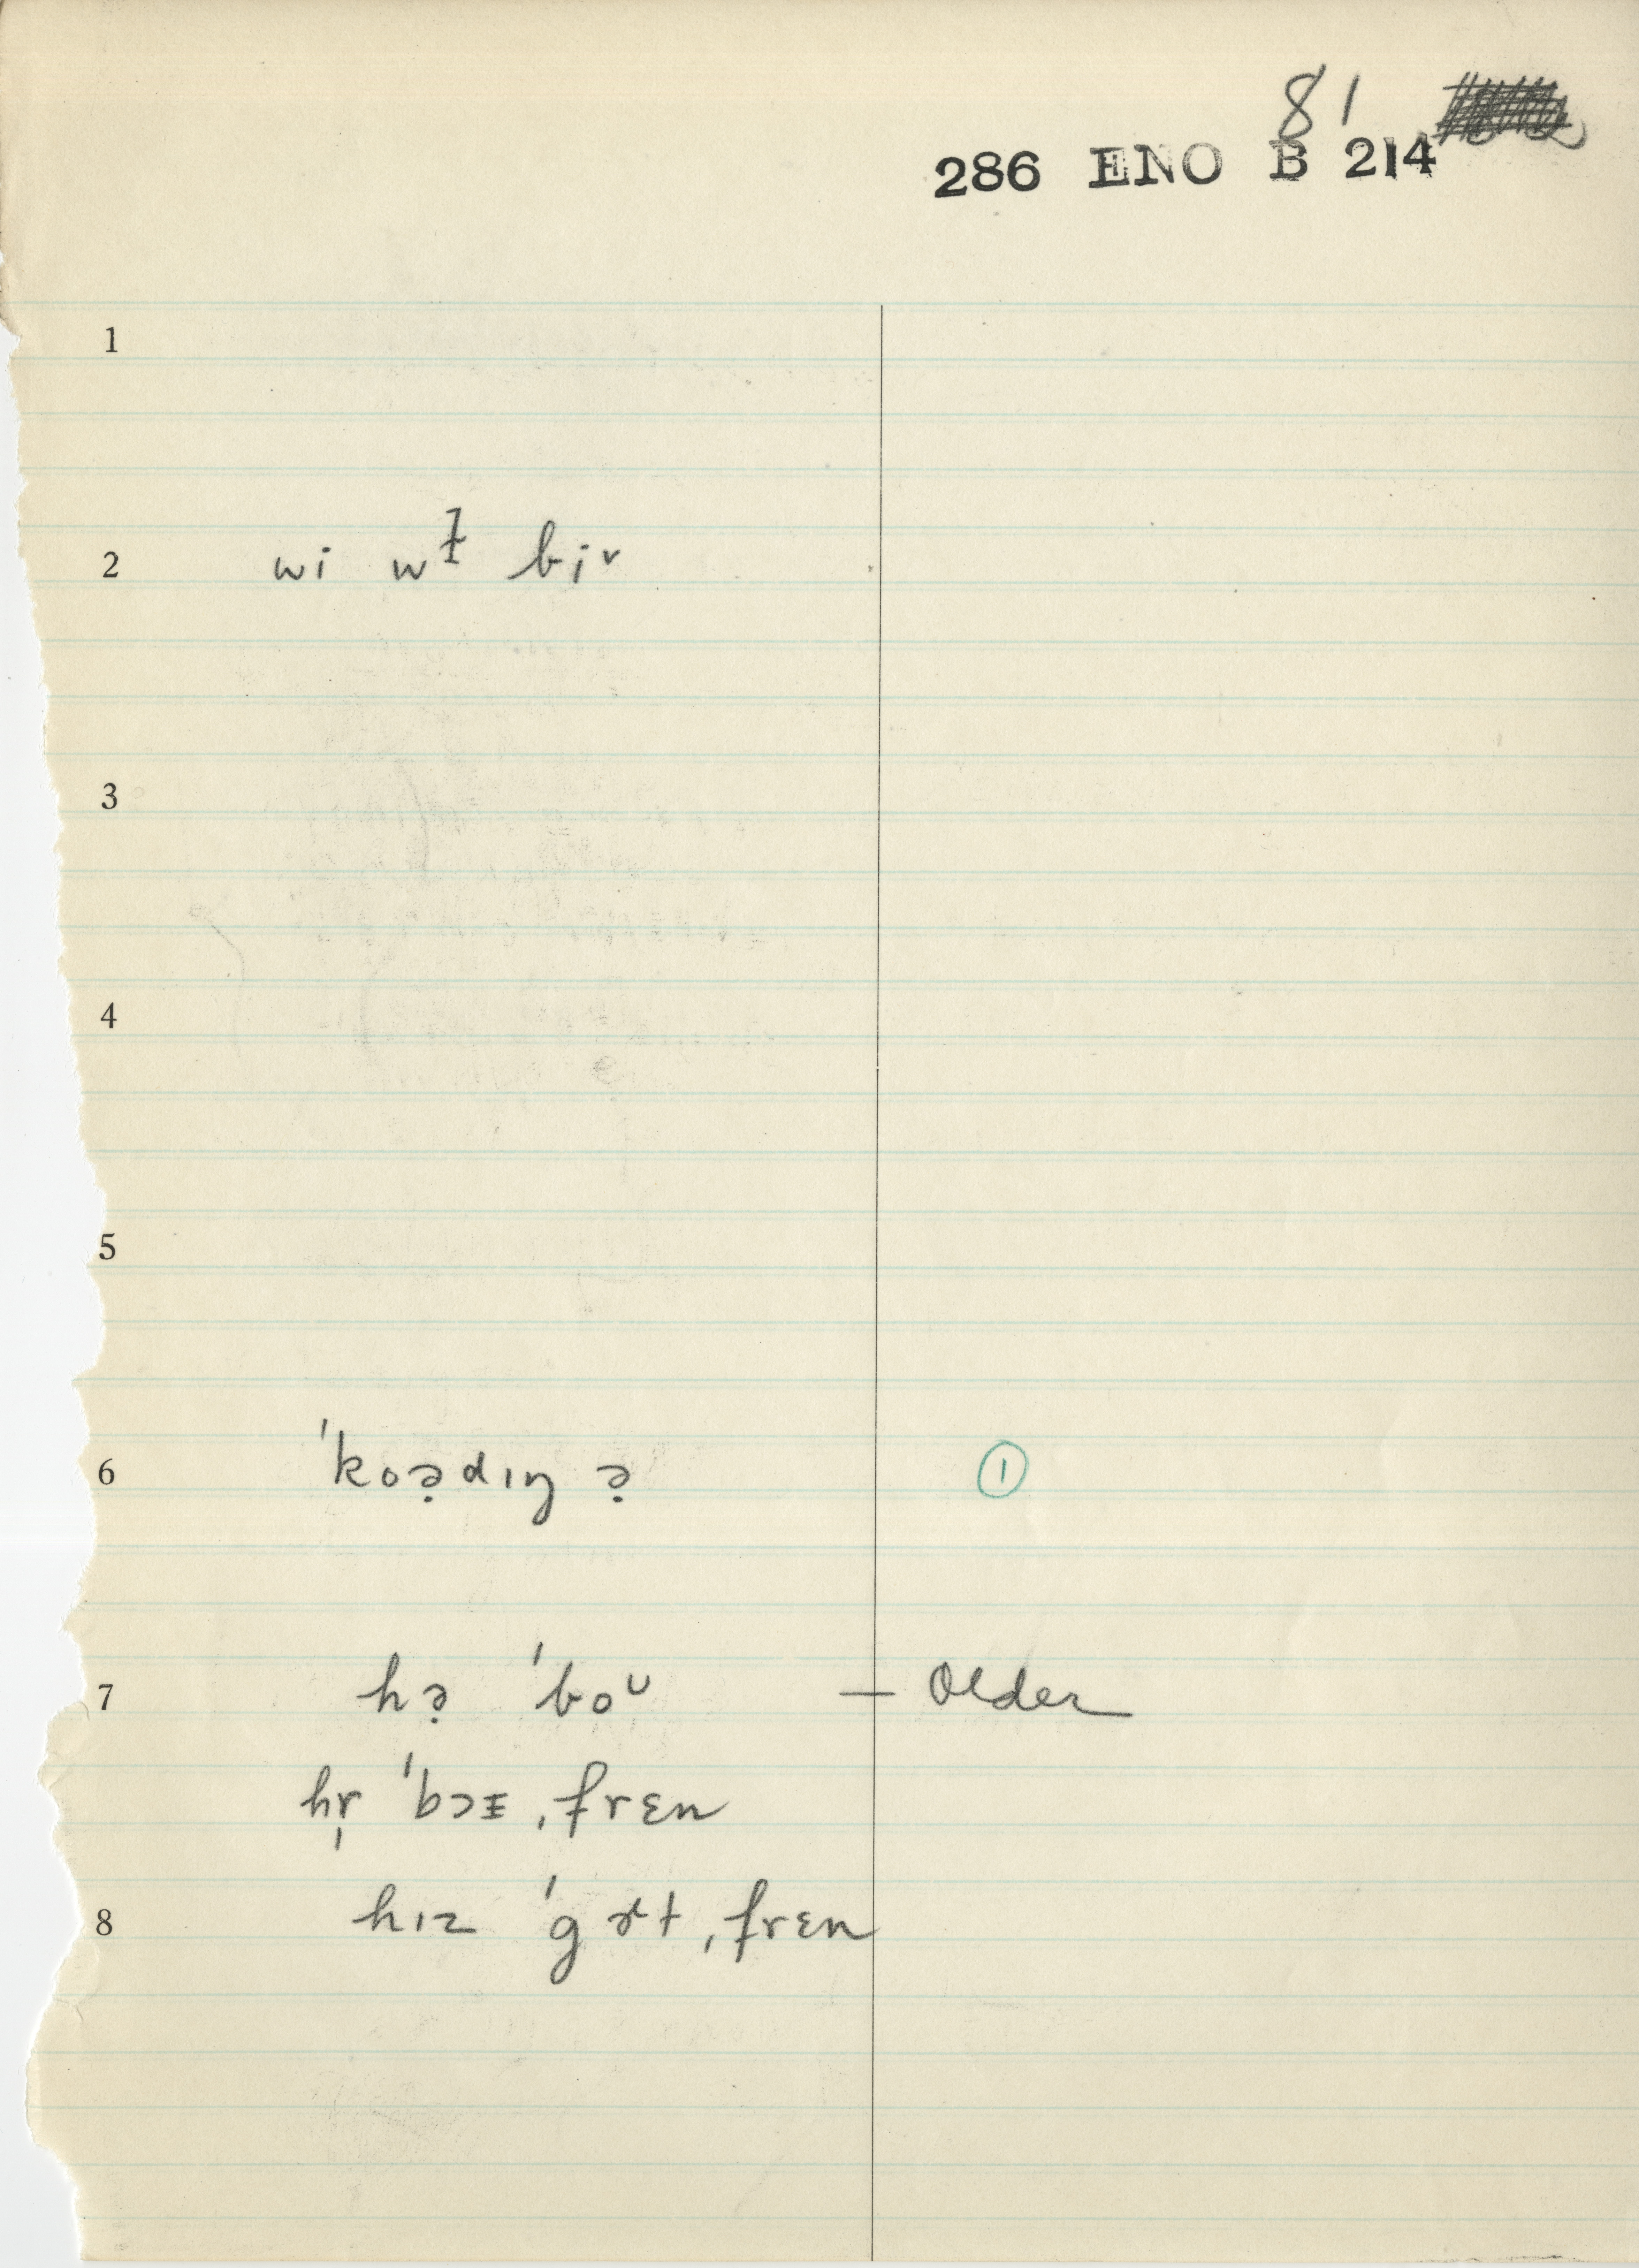 81
286 ENO B 214
1
2 wi wɫ bi̯v
3
4
5
6 ˈkoə̣dɪŋ ə̣ ①
7 hə̣ ˈboᴜ — Older
hr̩ ˈbɔᵻ ˌfrɛn
8 hɪz ˈgɚt ˌfrɛn